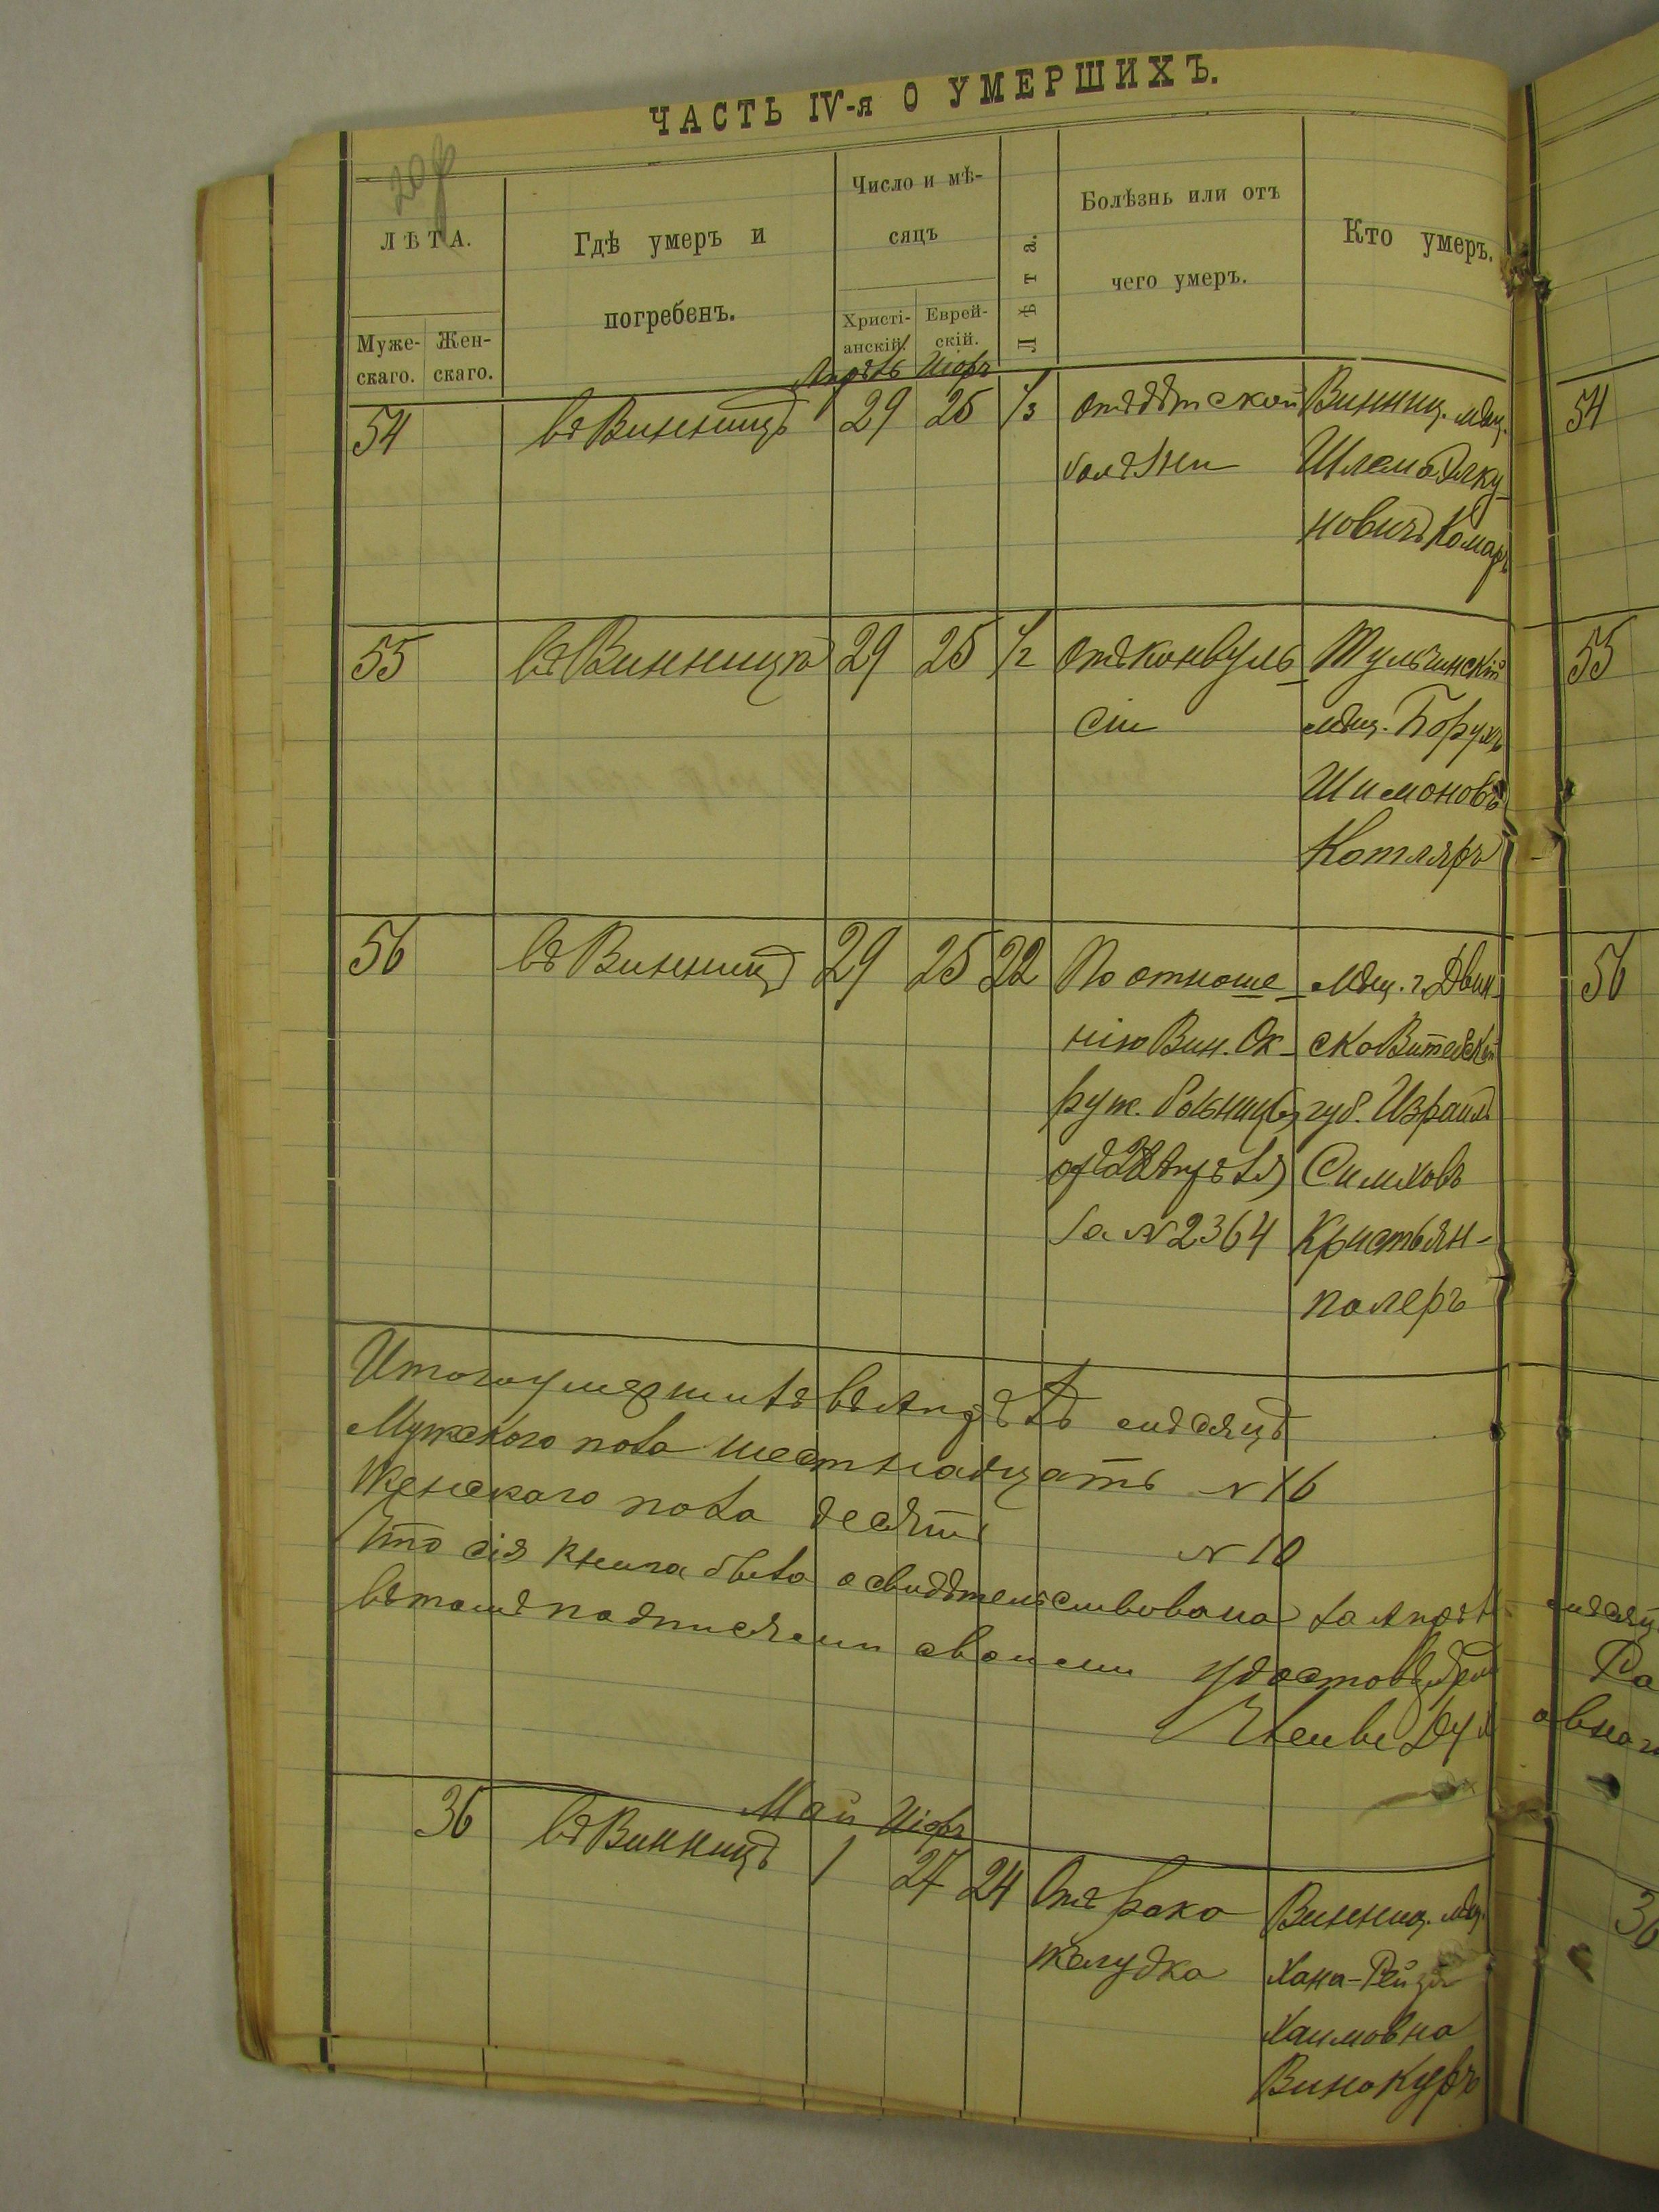 ЧАСТЬ IV-я О УМЕРШИХЪ.
ЛѢТА.
Муже-
скаго.
Жен-
скаго.
Гдѣ умеръ и
погребенъ.
Число и мѣ-
сяцъ
Христі-
анскій.
Еврей-
скій.
Лѣта.
Болѣзнь или отъ
чего умеръ.
Кто умеръ.
Апрѣль Иіоръ
54 въ Винницѣ 29 25 1/3 отъ дѣтской Винниц. мѣщ. 54
болѣзни Шлема Элку-
новичъ Комаръ
55 въ Винницѣ 29 25 1/2 Отъ конвуль- Тульчинскій 55
сіи мѣщ. Борухъ
Шимоновъ
Котляръ
56 въ Винницѣ 29 25 22 По отноше- Мѣщ. г. Двин- 56
нію Вин. Ок- ска Витебской
руж. больницы губ. Израиль
Апрѣля Симховъ
за № 2364 Кристьян-
полеръ
Итого умершихъ въ Апрѣлѣ мѣсяцѣ
Мужского пола шестнадцать № 16
Женскаго пола десять № 10
Что сія книга была освидѣтельствована за Апрѣль мѣсяцъ
въ томъ подписями своими удостовѣряемъ
Май Иіоръ
36 въ Винницѣ 1 27 24 Отъ рака Винниц. мѣщ. 36
желудка Хана-Рейзя
Хаимовна
Винокуръ